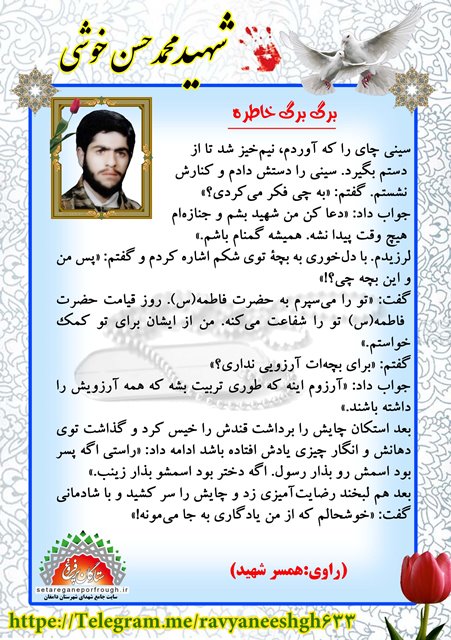 شهید محمد حسن خوشی
برگ برگ خاطره
سینی چای را که آوردم، نیم‌خیز شد تا از
دستم بگیرد. سینی را دستش دادم و کنارش
نشستم. گفتم: «به چی فکر می‌کردی؟»
جواب داد: «دعا کن من شهید بشم و جنازه‌ام
هیچ وقت پیدا نشه. همیشه گمنام باشم.»
لرزیدم. با دل‌خوری به بچهٔ توی شکم اشاره کردم و گفتم: «پس من
و این بچه چی؟!»
گفت: «تو را می‌سپرم به حضرت فاطمه(س). روز قیامت حضرت
فاطمه(س) تو را شفاعت می‌کنه. من از ایشان برای تو کمک
خواستم.»
گفتم: «برای بچه‌ات آرزویی نداری؟»
جواب داد: «آرزوم اینه که طوری تربیت بشه که همه آرزویش را
داشته باشند.»
بعد استکان چایش را برداشت قندش را خیس کرد و گذاشت توی
دهانش و انگار چیزی یادش افتاده باشد ادامه داد: «راستی اگه پسر
بود اسمش رو بذار رسول. اگه دختر بود اسمشو بذار زینب.»
بعد هم لبخند رضایت‌آمیزی زد و چایش را سر کشید و با شادمانی
گفت: «خوشحالم که از من یادگاری به جا می‌مونه!»
(راوی:همسر شهید)
ستارگان پرفروغ
setareganeporfrough.ir
سایت جامع شهدای شهرستان دامغان
https://Telegram.me/ravyaneeshgh633